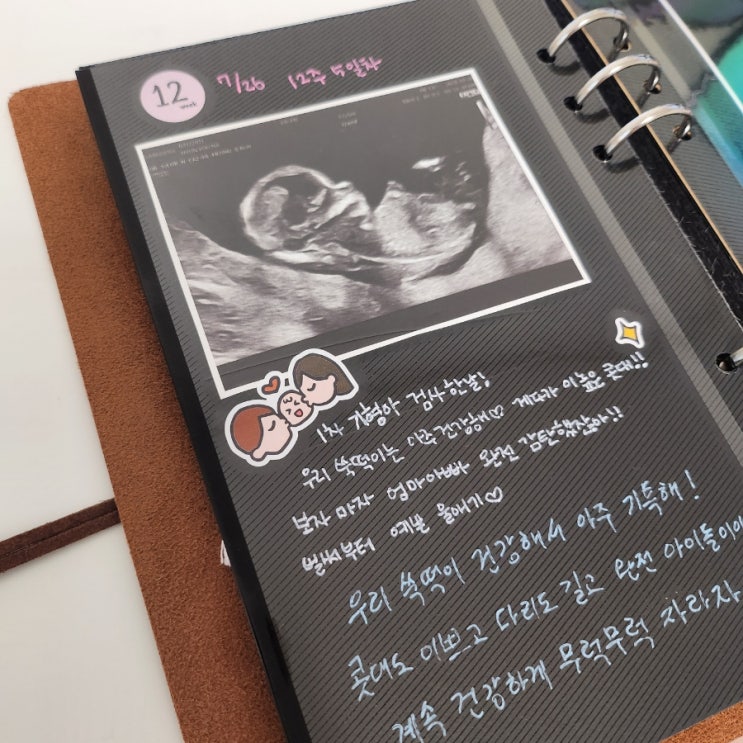 12 week
7/26 12주 5일차
1차 기형아 검사한날!
우리 쑥떡이는 아주건강해♡ 게다가 이높은 콧대!!
보자 마자 엄마아빠 완전 감탄했잖아!!
벌써부터 예쁜 울애기♡
우리 쑥떡이 건강해서 아주 기특해!
콧대도 이쁘고 다리도 길고 완전 아이돌이야
계속 건강하게 무럭무럭 자라자